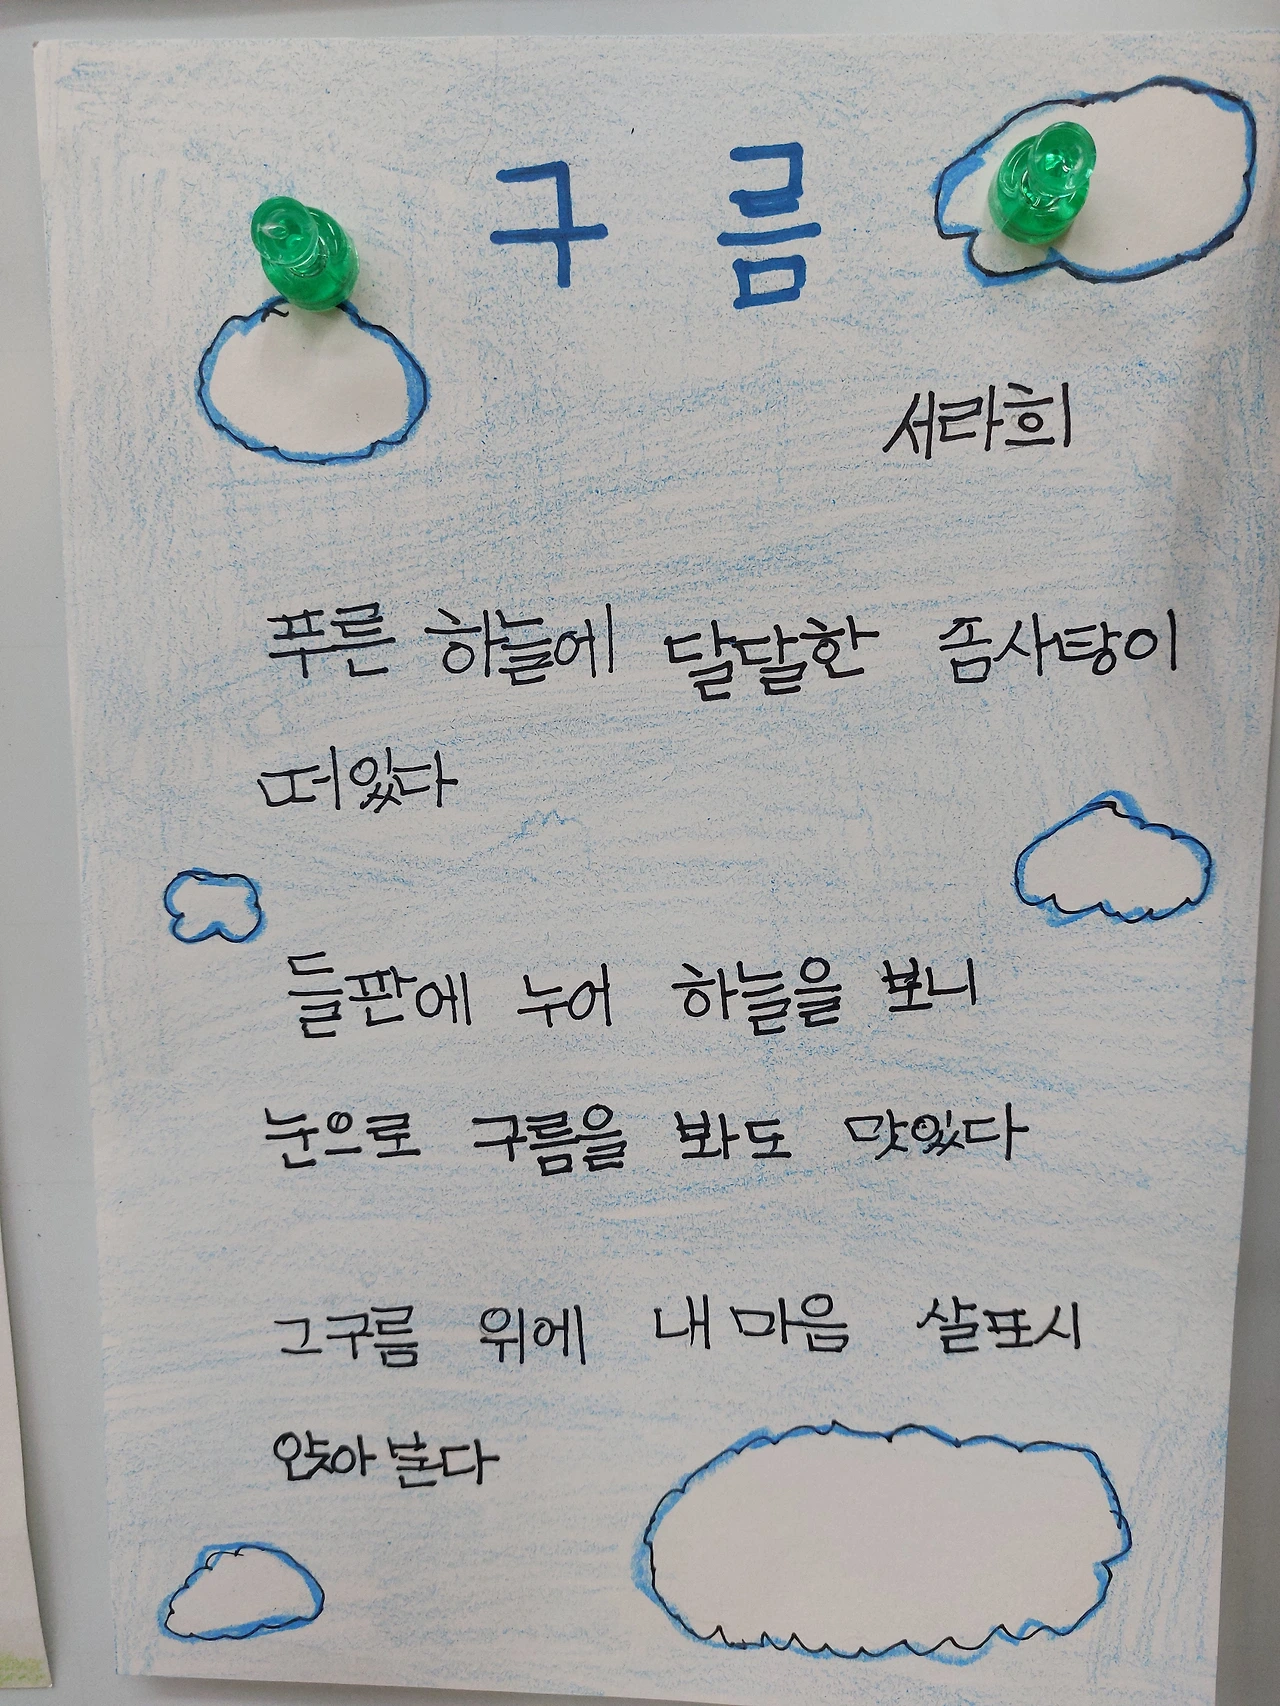 구름
서라희
푸른 하늘에 달달한 좀사탕이
떠있다
들판에 누어 하늘을 보니
눈으로 구름을 봐도 맛있다
그구름 위에 내 마음 살포시
앉아 본다